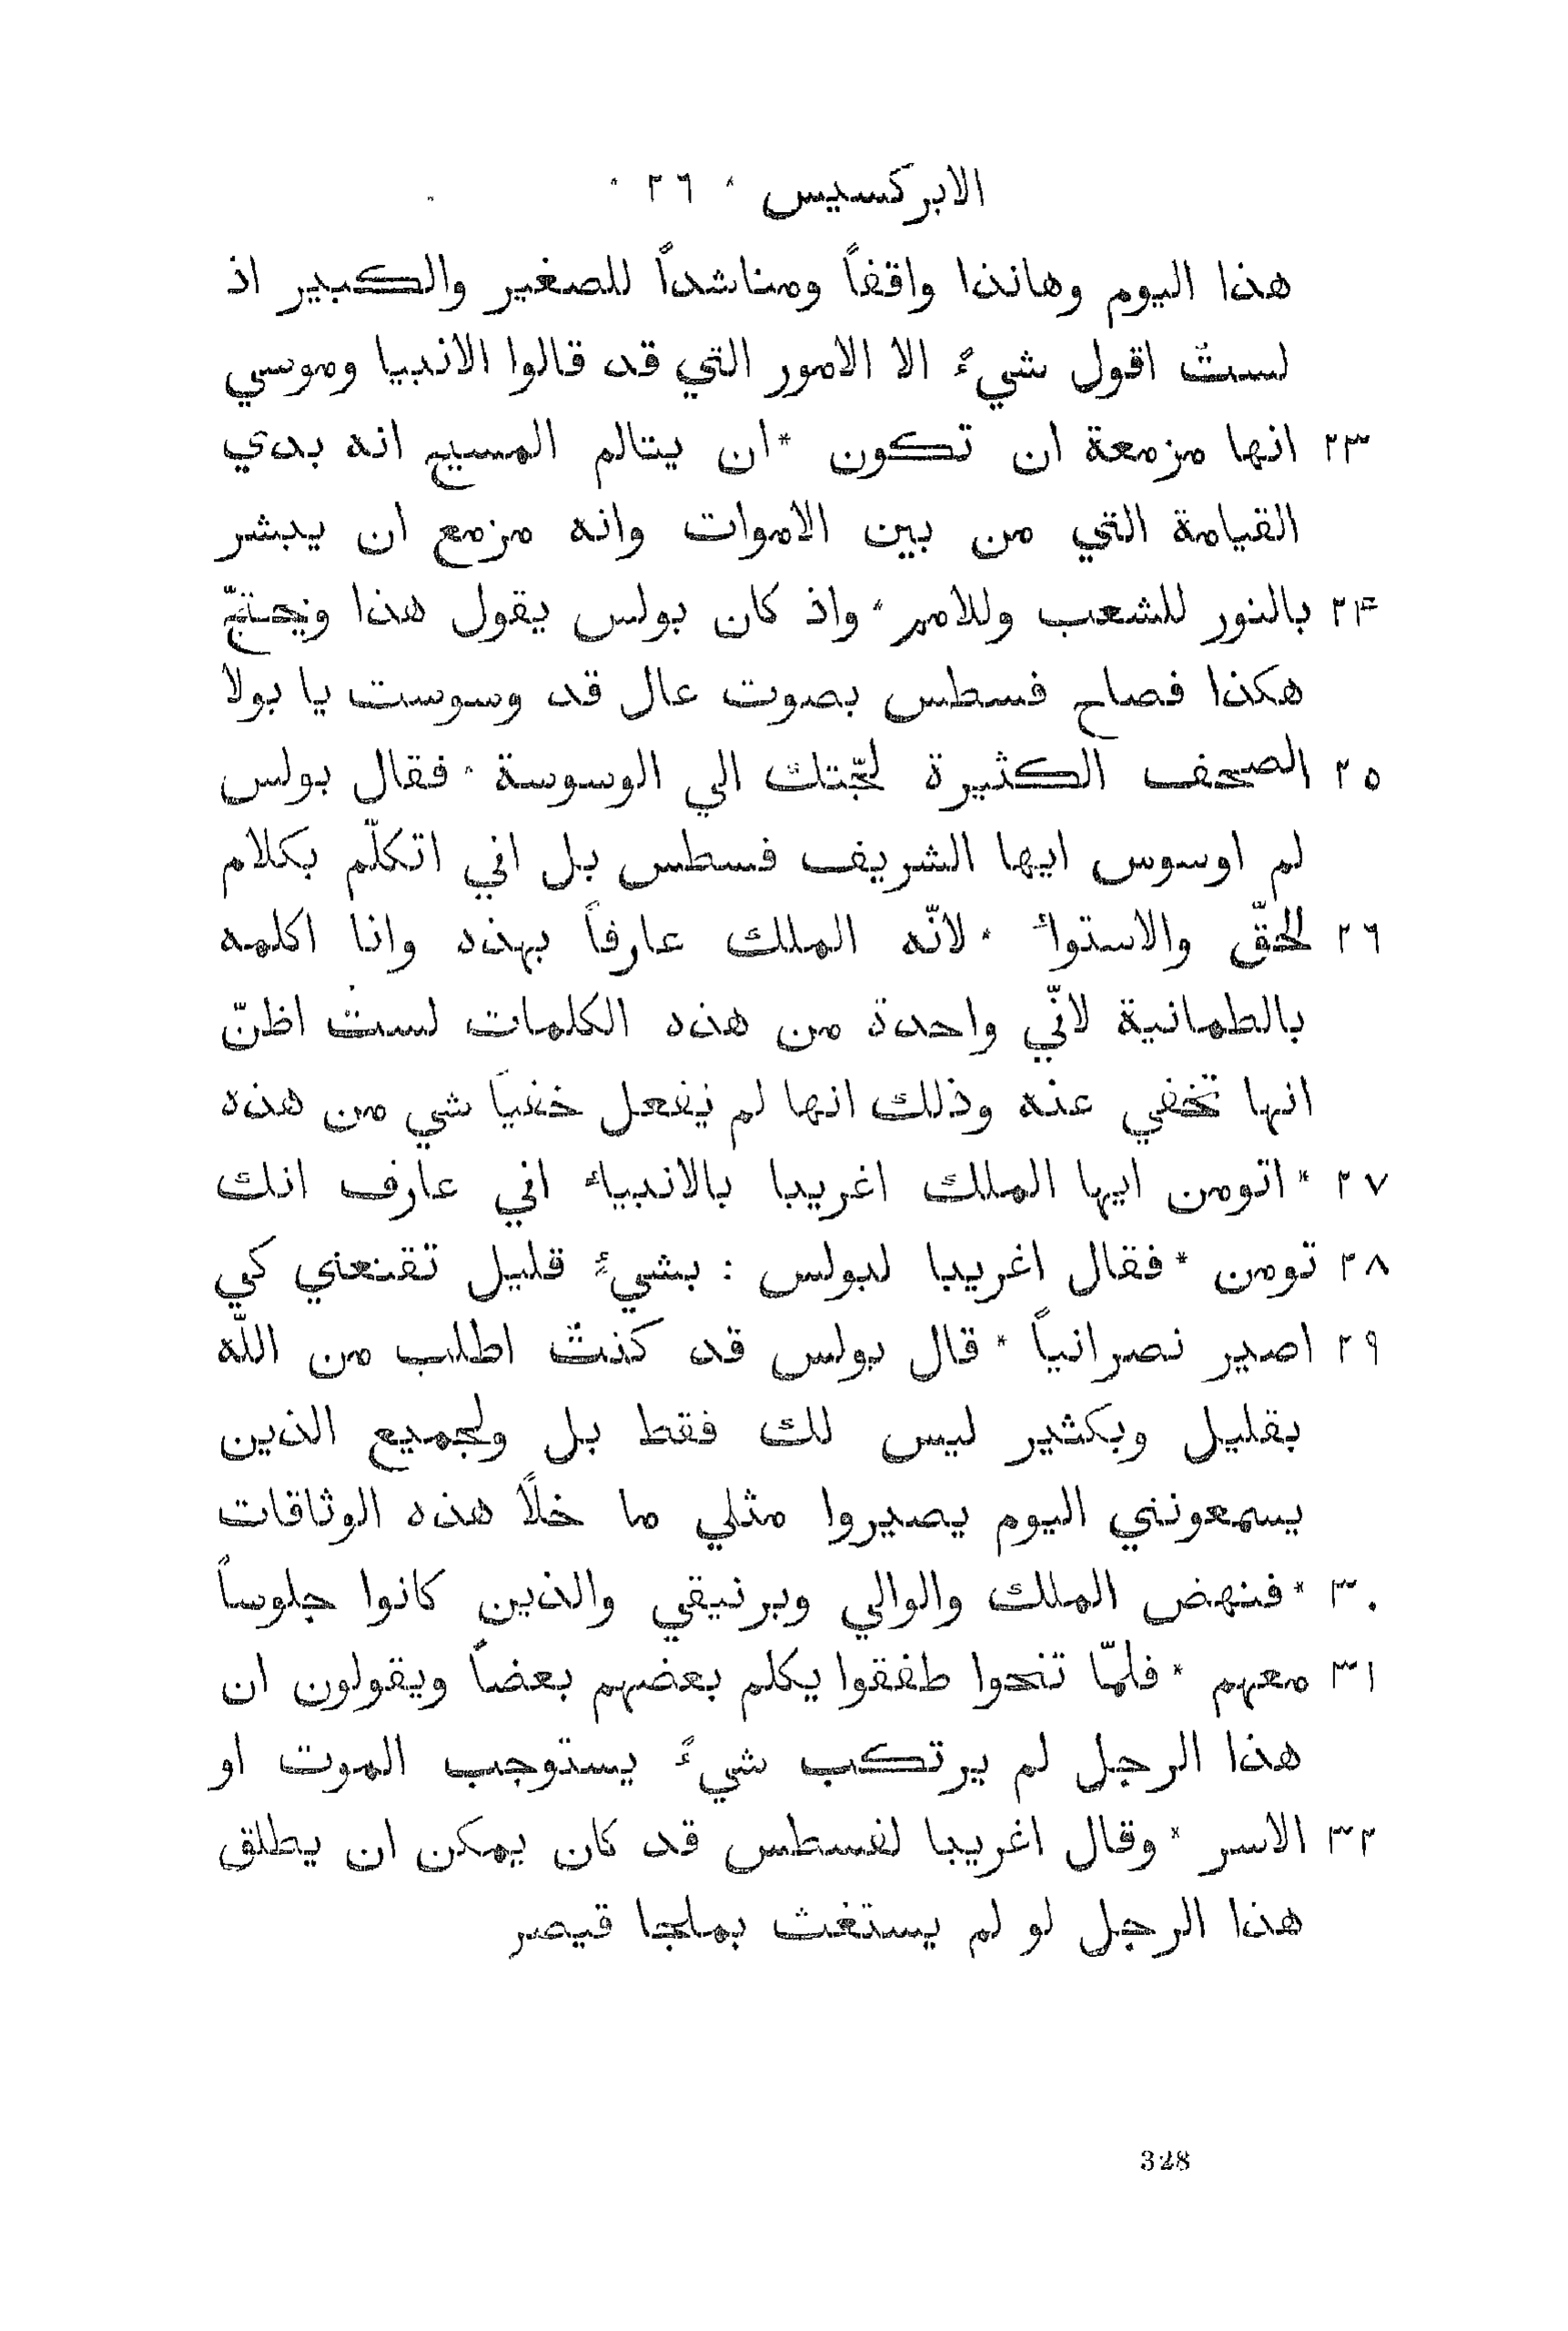 الابركسيس * ٢٦ *
هذا اليوم وهانذا واقفاً ومناشداً للصغير والكبير اذ
لستُ اقول شيءً الا الامور التي قد قالوا الانبيا وموسي
٢٣ انها مزمعة ان تكون *ان يتالم المسيح انه بدي
القيامة التي من بين الاموات وانه مزمع ان يبشر
٢۴ بالنور للشعب وللامم * واذ كان بولس يقول هذا ويحتجّ
هكذا فصاح فسطس بصوت عال قد وسوست يا بولا
٢٥ الصحف الكثيرة لجّتك الي الوسوسة * فقال بولس
لم اوسوس ايها الشريف فسطس بل اني اتكلّم بكلام
٢٦ الحقّ والاستواء * لانّه الملك عارفاً بهذه وانا اكلمه
بالطمانية لانّي واحدة من هذه الكلمات لستُ اظنّ
انها تخفي عنه وذلك انها لم يفعل خفياً شي من هذه
٢٧ * اتومن ايها الملك اغريبا بالانبياء اني عارف انك
٢٨ تومن * فقال اغريبا لبولس : بشيءٍ قليل تقنعني كي
٢٩ اصير نصرانياً * قال بولس قد كنتُ اطلب من اللّه
بقليل وبكثير ليس لك فقط بل ولجميع الذين
يسمعونني اليوم يصيروا مثلي ما خلاً هذه الوثاقات
٣٠ * فنهض الملك والوالي وبرنيقي والذين كانوا جلوساً
٣١ معهم * فلمّا تنحوا طفقوا يكلم بعضهم بعضاً ويقولون ان
هذا الرجل لم يرتكب شيءً يستوجب الموت او
٣٢ الاسر * وقال اغريبا لفسطس قد كان يمكن ان يطلق
هذا الرجل لو لم يستغث بملجا قيصر
328